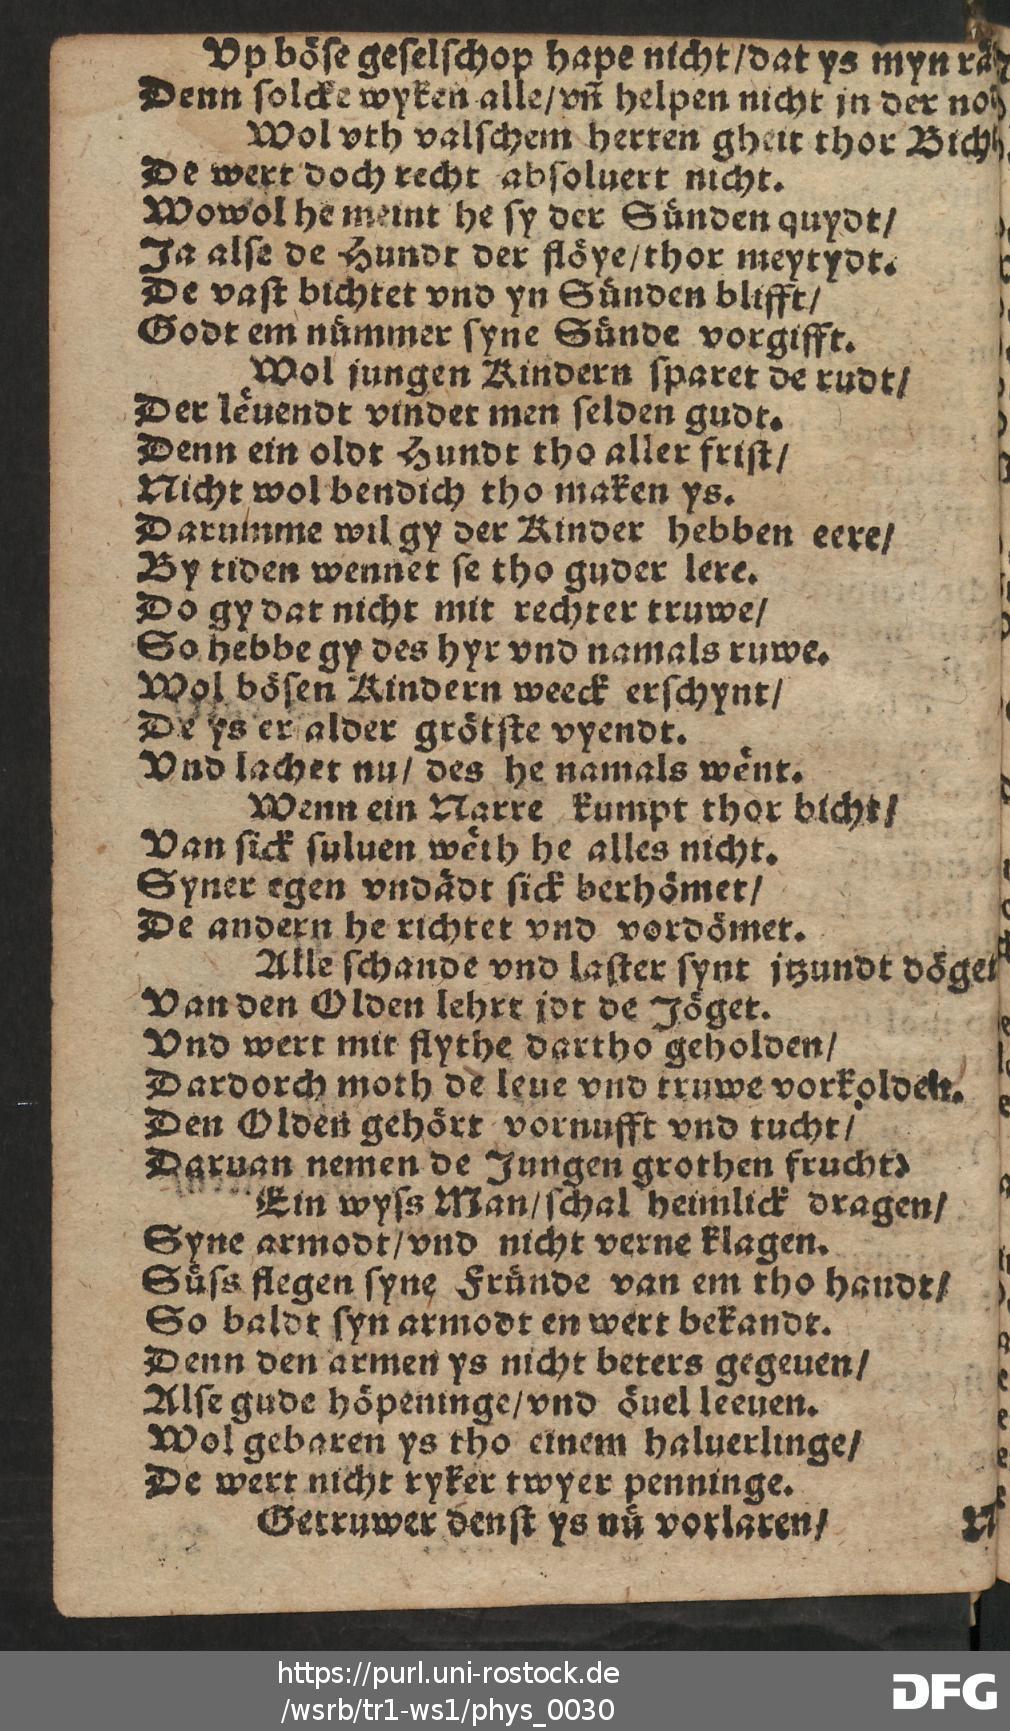 Vp böse geselschop hape nicht/dat ys myn
Denn solcke wyken alle/vñ helpen nicht in der
Wol vth valschem herten gheit thor
De wert doch recht absoluert nicht.
Wowol he meint he sy der Sünden quydt/
Ja alse de Hundt der flöye/thor meytydt.
De vast bichtet vnd yn Sünden blifft/
Godt em nümmer syne Sünde vorgifft.
Wol jungen Kindern sparet de rudt/
Der leͤuendt vindet men selden gudt.
Denn ein oldt Hundt tho aller frist/
Nicht wol bendich tho maken ys.
Darumme wil gy der Kinder hebben eere/
By tiden wennet se tho guder lere.
Do gy dat nicht mit rechter truwe/
So hebbe gy des hyr vnd namals ruwe.
Wol bösen Kindern weeck erschynt/
De ys er alder grötste vyendt.
Vnd lachet nu/ des he namals weͤnt.
Wenn ein Narre kumpt thor bicht/
Van sick suluen weͤth he alles nicht.
Syner egen vndädt sick berhömet/
De andern he richtet vnd vordömet.
Alle schande vnd laster synt jtzundt döget
Van den Olden lehrt jdt de Jöget.
Vnd wert mit flythe dartho geholden/
Dardorch moth de leue vnd truwe vorkolden.
Den Olden gehört vornufft vnd tucht/
Daruan nemen de Jungen grothen frucht.
Ein wyss Man/schal heimlick dragen/
Syne armodt/vnd nicht verne klagen.
Süss flegen syne Fründe van em tho handt/
So baldt syn armodt en wert bekandt.
Denn den armen ys nicht beters gegeuen/
Alse gude höpeninge/vnd öuel leeuen.
Wol gebaren ys tho einem haluerlinge/
De wert nicht ryker twyer penninge.
Getruwer denst ys nü vorlaren/
https://purl.uni-rostock.de
/wsrb/tr1-ws1/phys_0030
DFG